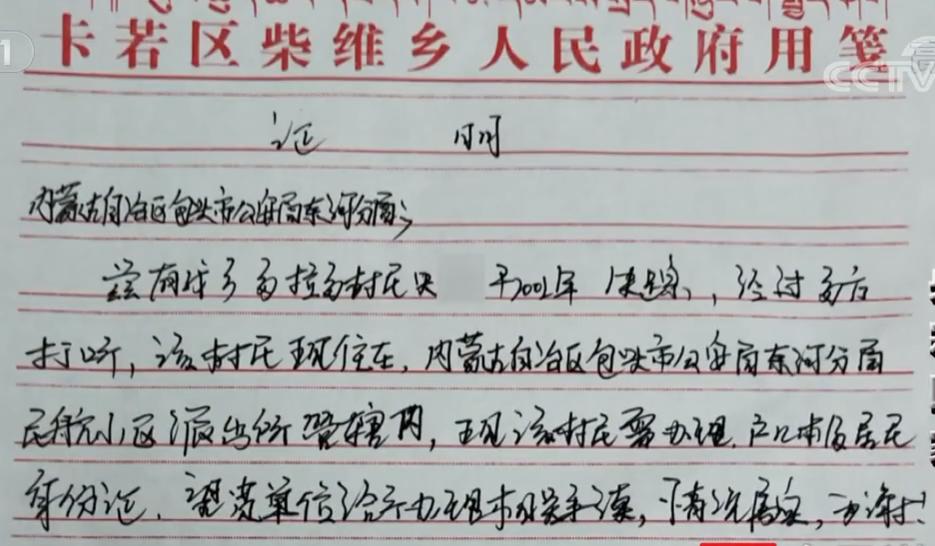 卡若区柴维乡人民政府用笺
CCTV
证 明
内蒙古自治区包头市公安局东河分局：
兹有我乡多拉多村民 于2002年 失踪，经过多方
打听，该村民现住在，内蒙古自治区包头市公安局东河分局
小区派出所管辖内，现该村民需办理，户口本及居民
身份证，望贵单位给予办理相关手续，情况属实，